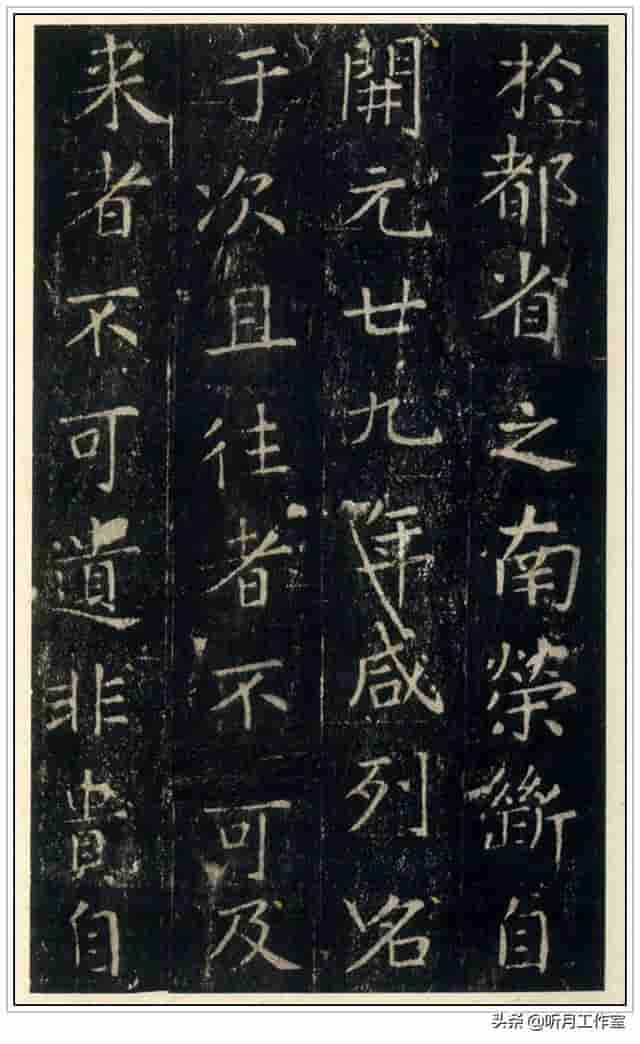 於都省之南榮斷自
開元廿九年咸列名
于次且往者不可及
来者不可遺非貴自
头条 @听月工作室